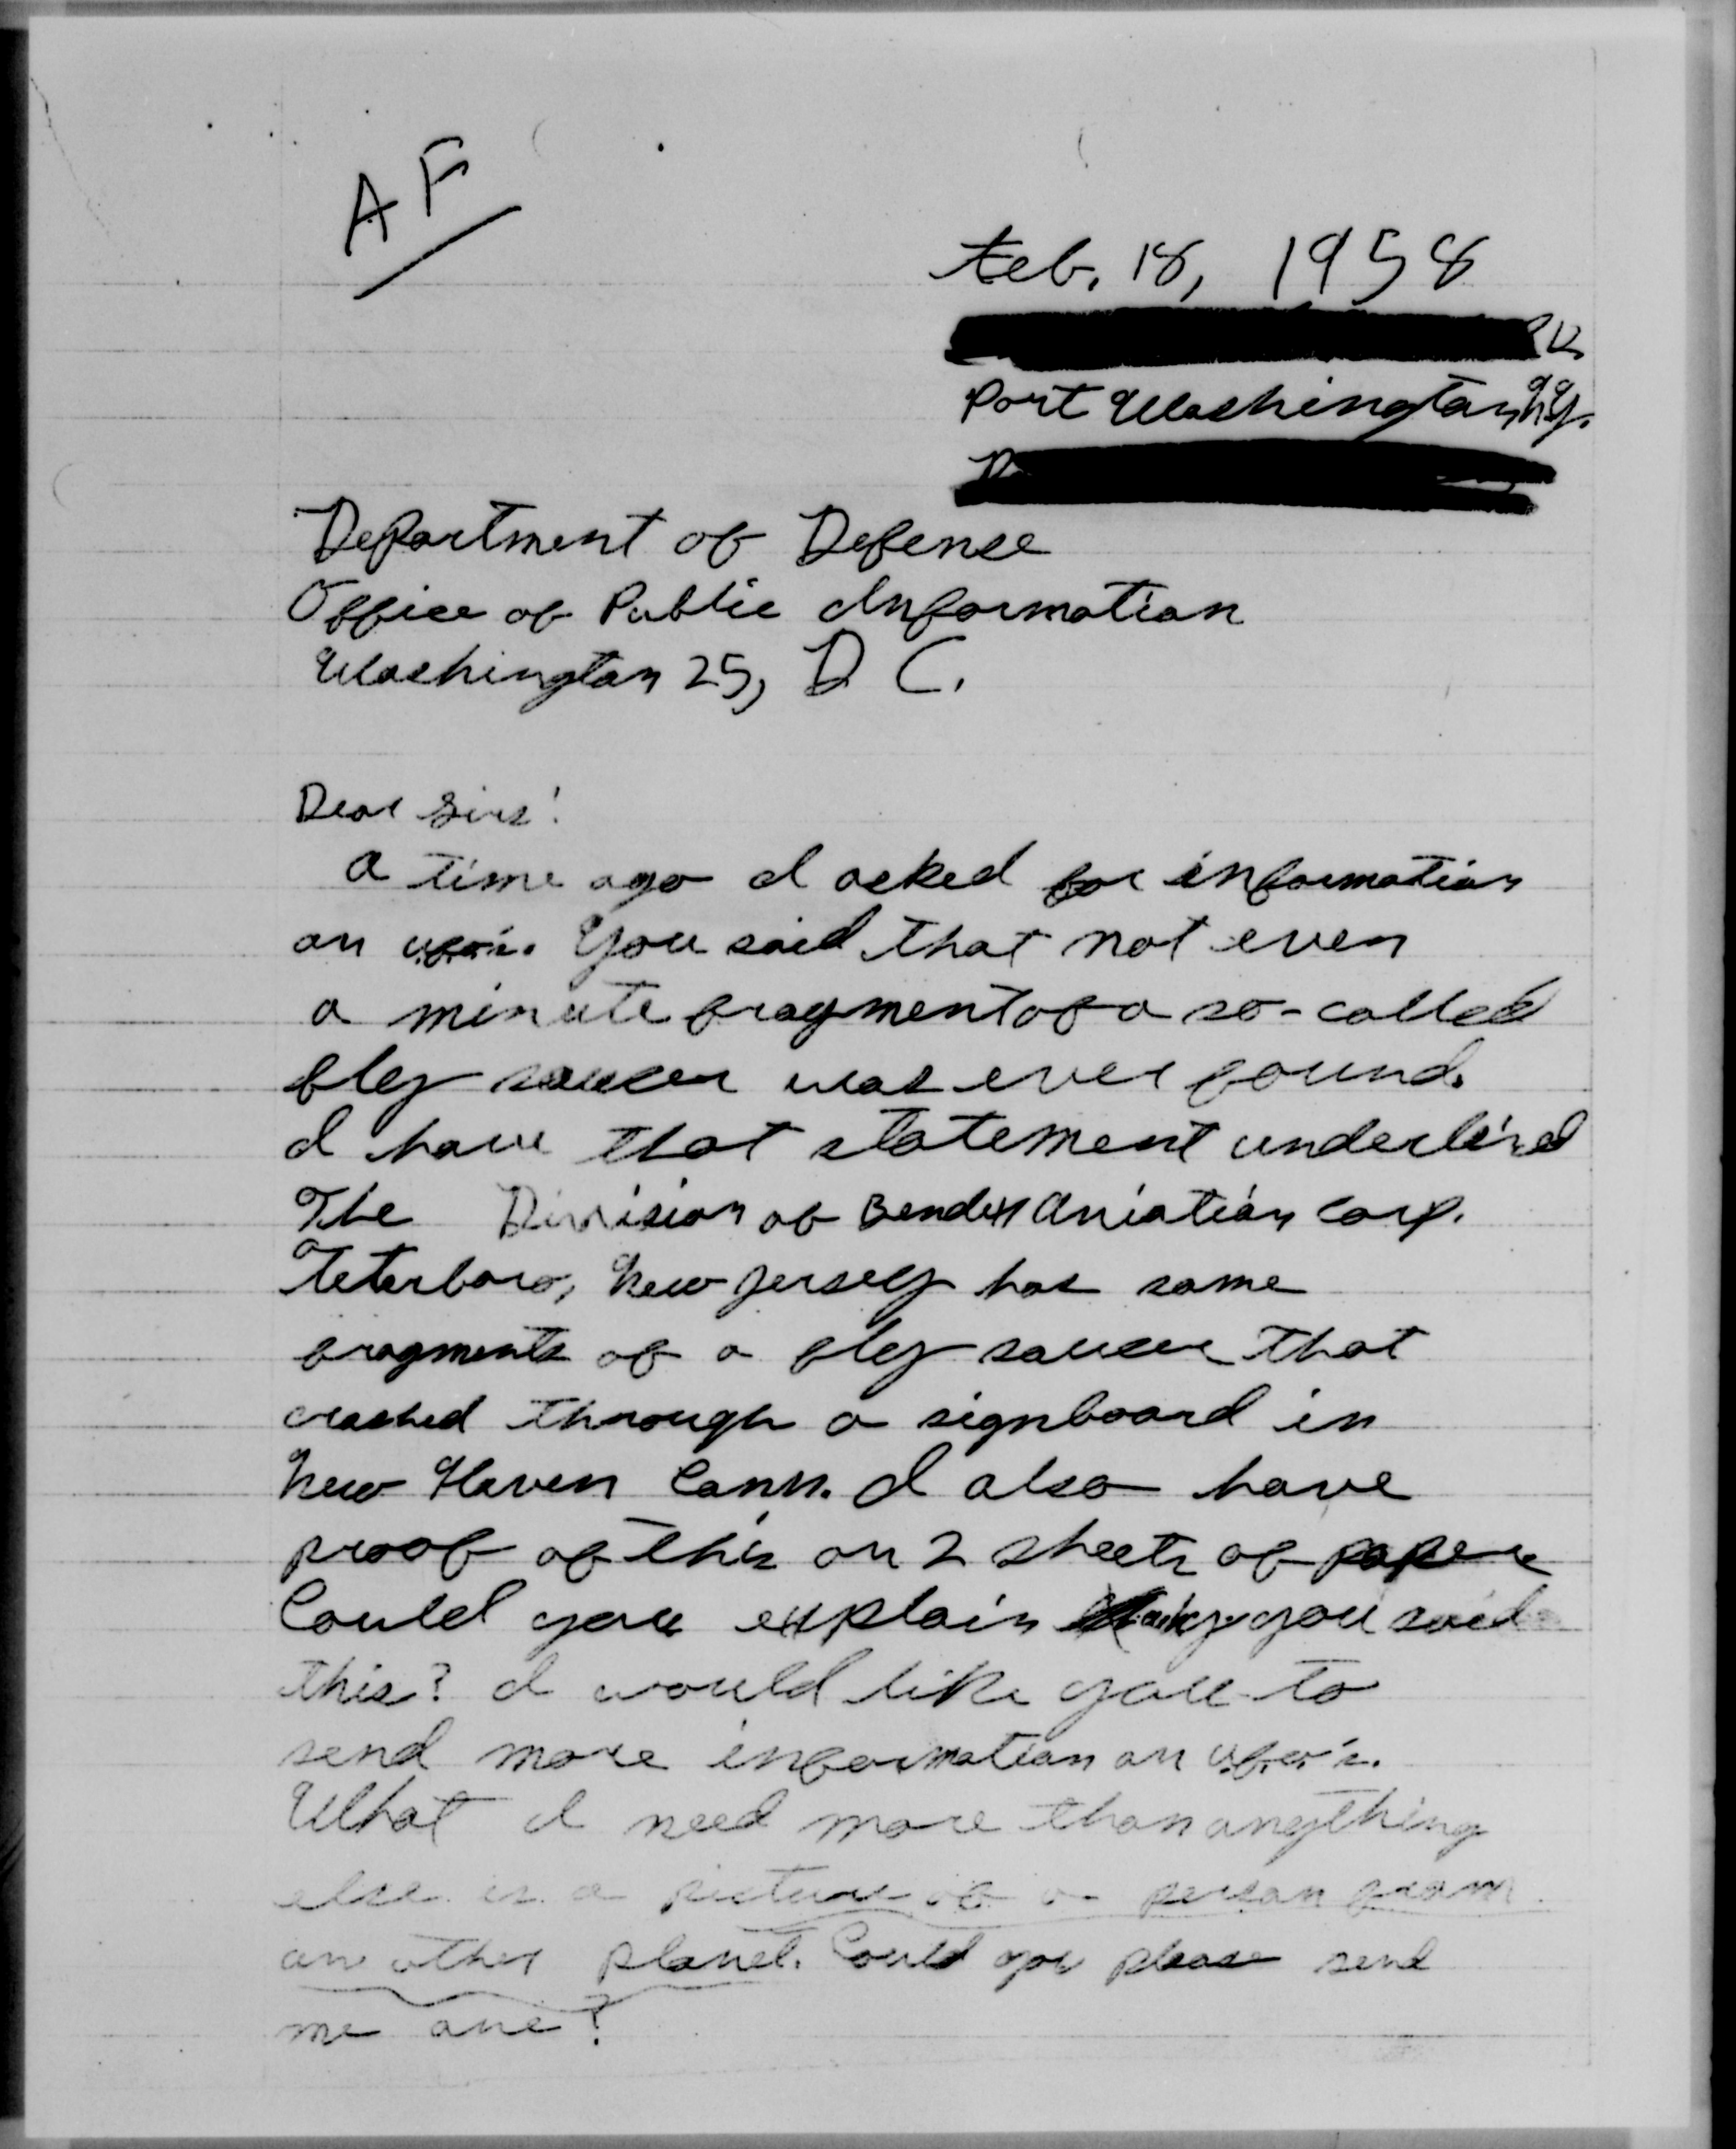 AF
Feb. 18, 1958
Port Washington, N.Y.
Department of Defense
Office of Public Information
Washington 25, D C.
Dear Sirs:
A time ago I asked for information
on u.f.o.'s. You said that not even
a minute fragment of a so-called
fley saucer was ever found.
I have that statement underlined
The Division of Bendix Aviation Corp.
Teterboro, New Jersey has some
fragments of a fley saucer that
crashed through a signboard in
New Haven Conn. I also have
proof of this on 2 sheets of paper
Could you explain why you said
this? I would like you to
send more information on u.f.o.'s.
What I need more than anything
else is a picture of a person from
an other planet. Could you please send
me one?